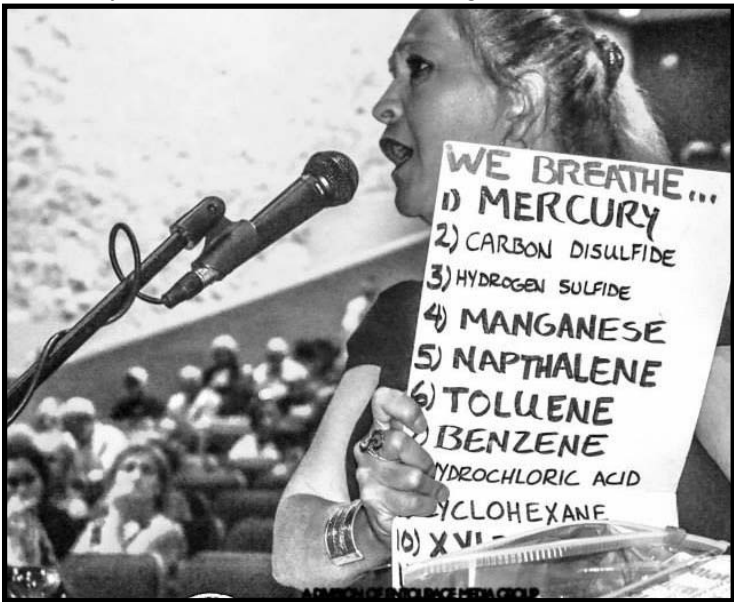 WE BREATHE...
1) MERCURY
2) CARBON DISULFIDE
3) HYDROGEN SULFIDE
4) MANGANESE
5) NAPTHALENE
6) TOLUENE
) BENZENE
YDROCHLORIC ACID
YCLOHEXANE
10)
A DIVISION OF ENTOURAGE MEDIA GROUP